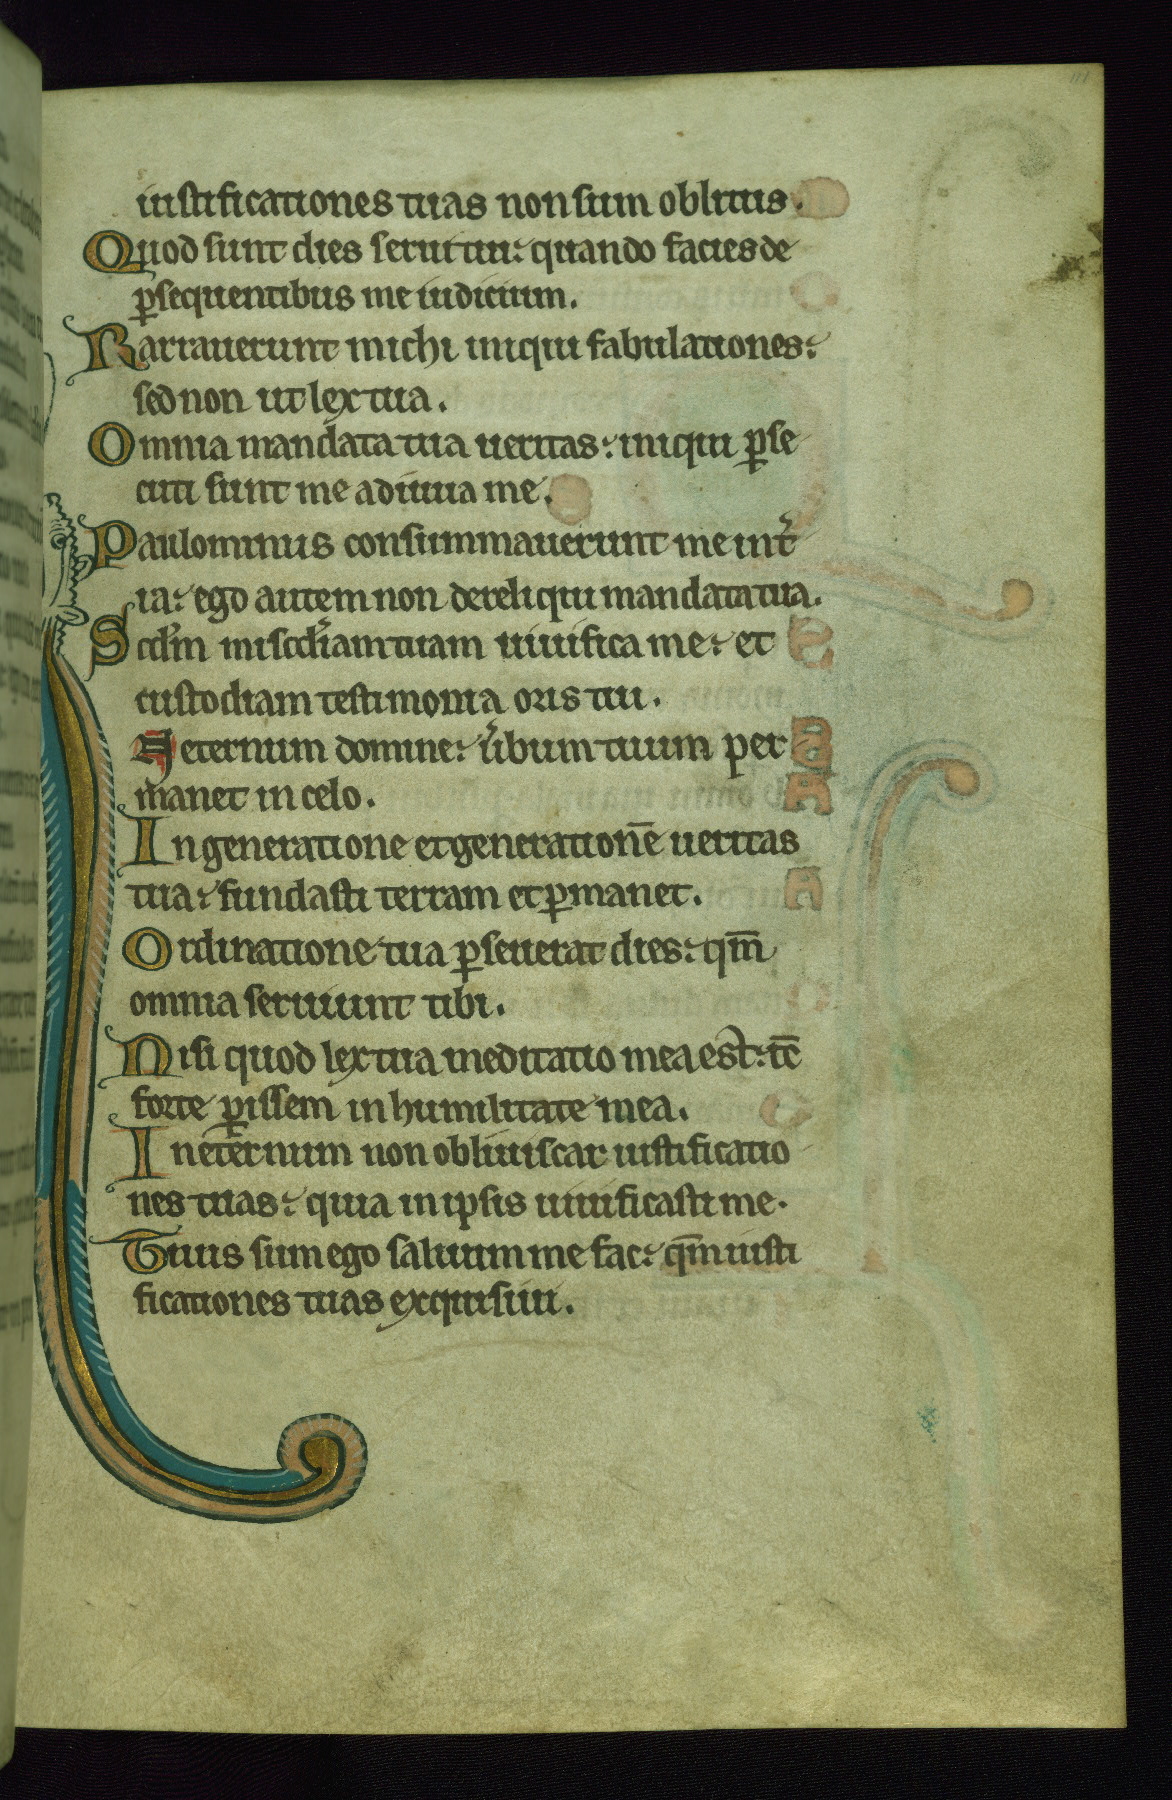 iustificationes tuas non sum oblitus.
Quod sunt dies serui tui: quando facies de
ꝑsequentibus me iudicium.
Rarrauerunt michi iniqui fabulationes:
sed non ut lex tua.
Omnia mandata tua ueritas: iniqui ꝑse
cuti sunt me adiuua me.
Paulominus consummauerunt me int̉
ra: ego autem non dereliqui mandata tua.
Scd̄m misc̄diam tuam uiuifica me: et
custodiam testimonia oris tui.
Aeternum domine: u̓bum tuum per
manet in celo.
In generatione et generationē ueritas
tua: fundasti terram et ꝑmanet.
Ordinatione tua ꝑseuerat dies: qm̄
omnia seruiunt tibi.
Nisi quod lex tua meditatio mea est: tc̄
forte ꝑissem in humilitate mea.
In eternum non obliuiscar iustificatio
nes tuas: quia in ipsis uiuificasti me.
Tuus sum ego saluum me fac: qm̄ iusti
ficationes tuas exquisiui.